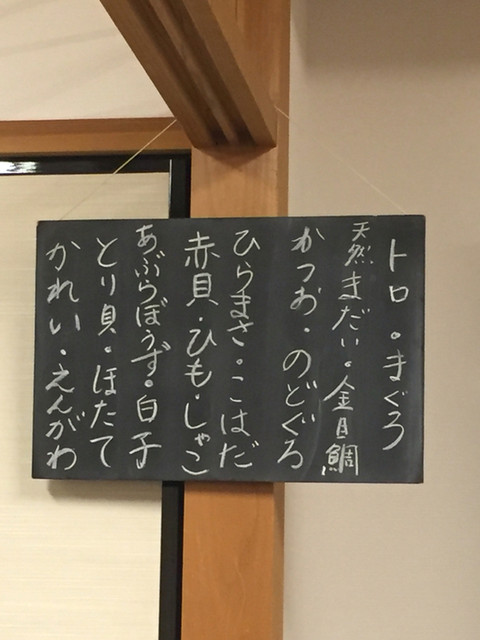 トロ・まぐろ
天然まだい・金目鯛
かつお・のどぐろ
ひらまさ・こはだ
赤貝・ひも・しゃこ
あぶらぼうず・白子
とり貝・ほたて
かれい・えんがわ